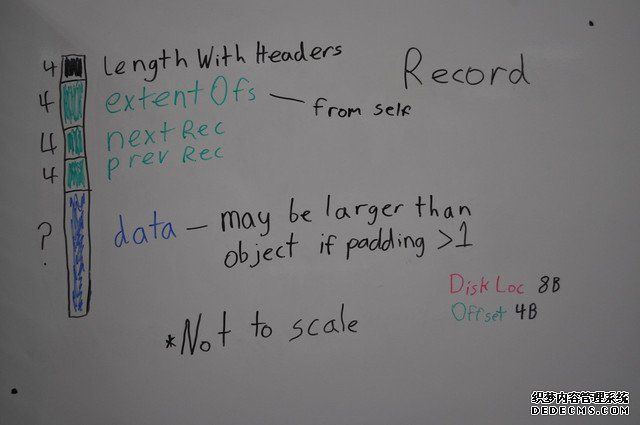 Record
4 Length With Headers
4 extentOfs — from self
4 nextRec
4 prev Rec
? data — may be larger than
object if padding >1
DiskLoc 8B
Offset 4B
*Not to scale
织梦内容管理系统
DEDECMS.COM